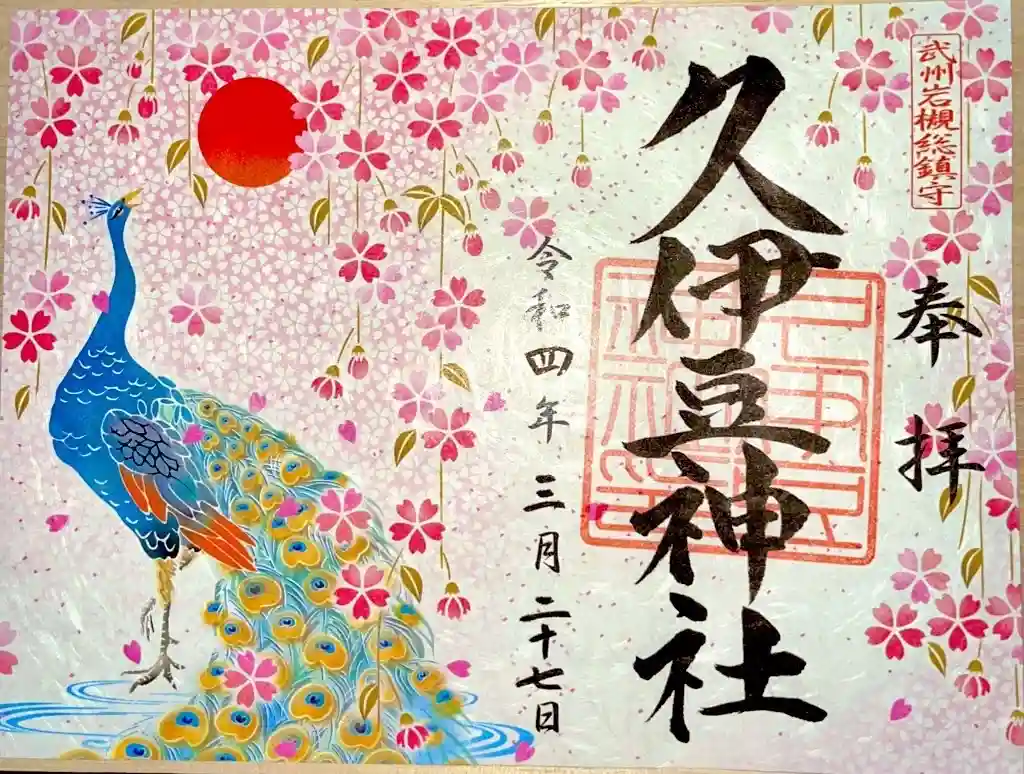 武州岩槻総鎮守
奉拝
久伊豆神社
令和四年三月二十七日